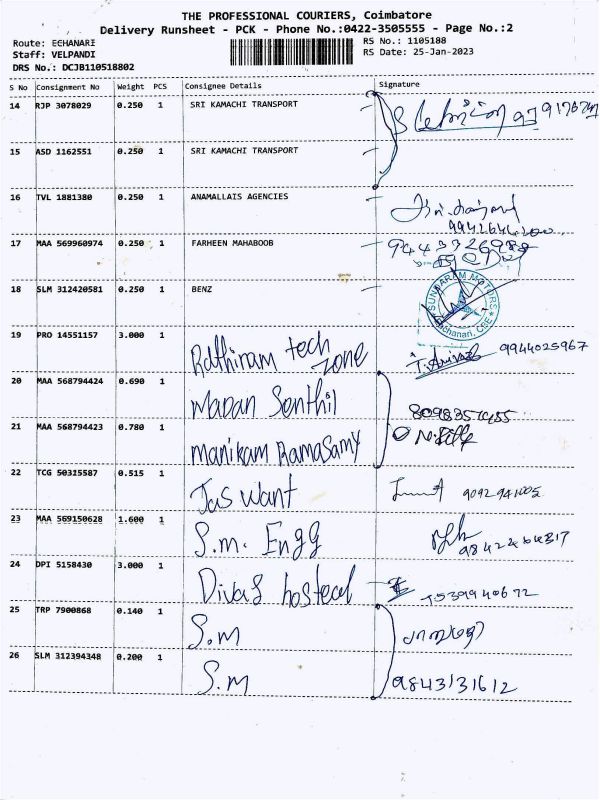 THE PROFESSIONAL COURIERS, Coimbatore
Delivery Runsheet - PCK - Phone No.:0422-3505555 - Page No.:2
Route: ECHANARI
RS No.: 1105188
Staff: VELPANDI
RS Date: 25-Jan-2023
DRS No.: DCJB110518802
S No Consignment No Weight PCS Consignee Details Signature
14 RJP 3078029 0.250 1 SRI KAMACHI TRANSPORT
15 ASD 1162551 0.250 1 SRI KAMACHI TRANSPORT
16 TVL 1881380 0.250 1 ANAMALLAIS AGENCIES
17 MAA 569960974 0.250 1 FARHEEN MAHABOOB
18 SLM 312420581 0.250 1 BENZ
SUNDARAM MOTORS
19 PRO 14551157 3.000 1 Rathiram tech zone 9944025967
20 MAA 568794424 0.690 1 Madan Senthil
21 MAA 568794423 0.780 1 Manikam Ramasamy
22 TCG 50315587 0.515 1 Jas want
23 MAA 569150628 1.600 1 S.m. Engg
24 DPI 5158430 3.000 1 Divas hosteal
25 TRP 7900868 0.140 1 S.m
26 SLM 312394348 0.200 1 S.m 9843131612